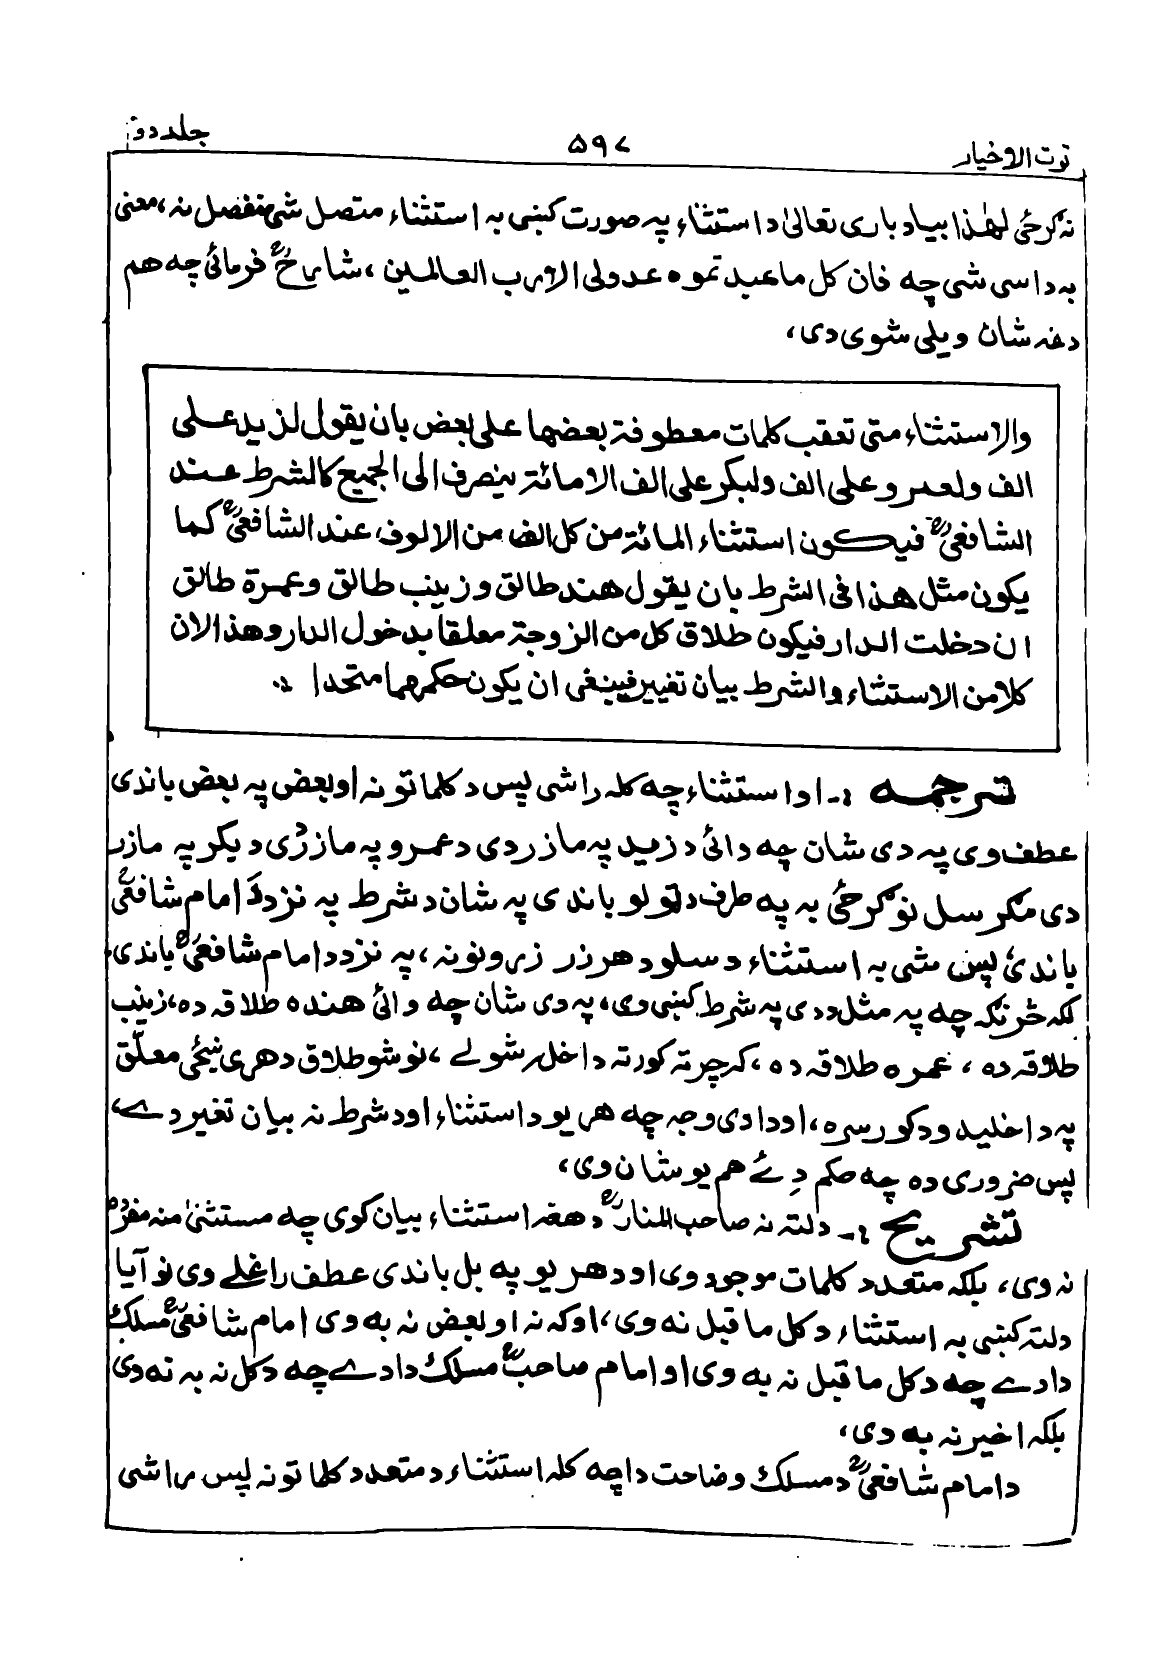 توت الاخیار ۵۹۷ جلد دوم
نه گرځی لهٰذا بیا د باری تعالیٰ د استثناء په صورت کښی به استثناء متصل شی منفصل نه، معنی
به داسی شی چه فان کل ما عبد تموه عدولی الا رب العالمین، شارحؒ فرمائی چه هم
دغه شان ویلی شوی دی،
والاستثناء متی تعقب کلمات معطوفة بعضها علی بعض بان یقول لزید علی
الف ولعمرو علی الف ولبکر علی الف الا مائة ینصرف الی الجمیع کالشرط عند
الشافعیؒ فیکون استثناء المائة من کل الف من الالوف عند الشافعیؒ کما
یکون مثل هذا فی الشرط بان یقول هند طالق وزینب طالق وعمرة طالق
ان دخلت الدار فیکون طلاق کل من الزوجة معلقا بدخول الدار وهذا لان
کلا من الاستثناء والشرط بیان تغییر فینبغی ان یکون حکمهما متحدا
ترجمه :- او استثناء چه کله راشی پس د کلماتو نه او بعض په بعض باندی
عطف وی په دی شان چه وائی د زید په ما زر دی د عمرو په ما زر دی د بکر په ما زر
دی مگر سل نو گرځی به په طرف د ټولو باندی په شان د شرط په نزد د امام شافعیؒ
باندی پس شی به استثناء د سلو د هر زر زرونو نه، په نزد د امام شافعیؒ باندی
لکه څرنگه چه په مثل ددی په شرط کښی وی، په دی شان چه وائی هنده طلاقه ده، زینب
طلاقه ده، عمره طلاقه ده، که چرته کور ته داخل شولے، نو شو طلاق د هری ښځی معلّق
په داخلیدو د کور سره، او دا دی وجه چه هر یو د استثناء او د شرط نه بیان تغیر دے،
پس ضروری ده چه حکم دِ ئے هم یو شان وی،
تشریح :- دلته نه صاحب المنارؒ د هغه استثناء بیان کوی چه مستثنیٰ منه مفرد
نه وی، بلکه متعدد کلمات موجود وی او د هر یو په بل باندی عطف راغلے وی نو آیا
دلته کښی به استثناء د کل ما قبل نه وی، او که نه او بعض نه به وی امام شافعیؒ مسلک
دا دے چه د کل ما قبل نه به وی او امام صاحبؒ مسلک دا دے چه د کل نه به نه وی
بلکه اخیر نه به وی،
د امام شافعیؒ د مسلک وضاحت دا چه کله استثناء د متعدد کلماتو نه پس راشی